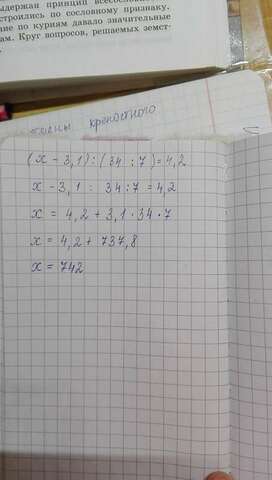 ыдержан принцип всесословно
строились по сословному признаку.
ие по куриям давало значительные
ам. Круг вопросов, решаемых земст-
крепостного
(x - 3,1) : (34 : 7) = 4,2
x - 3,1 : 34 : 7 = 4,2
x = 4,2 + 3,1 · 34 · 7
x = 4,2 + 737,8
x = 742